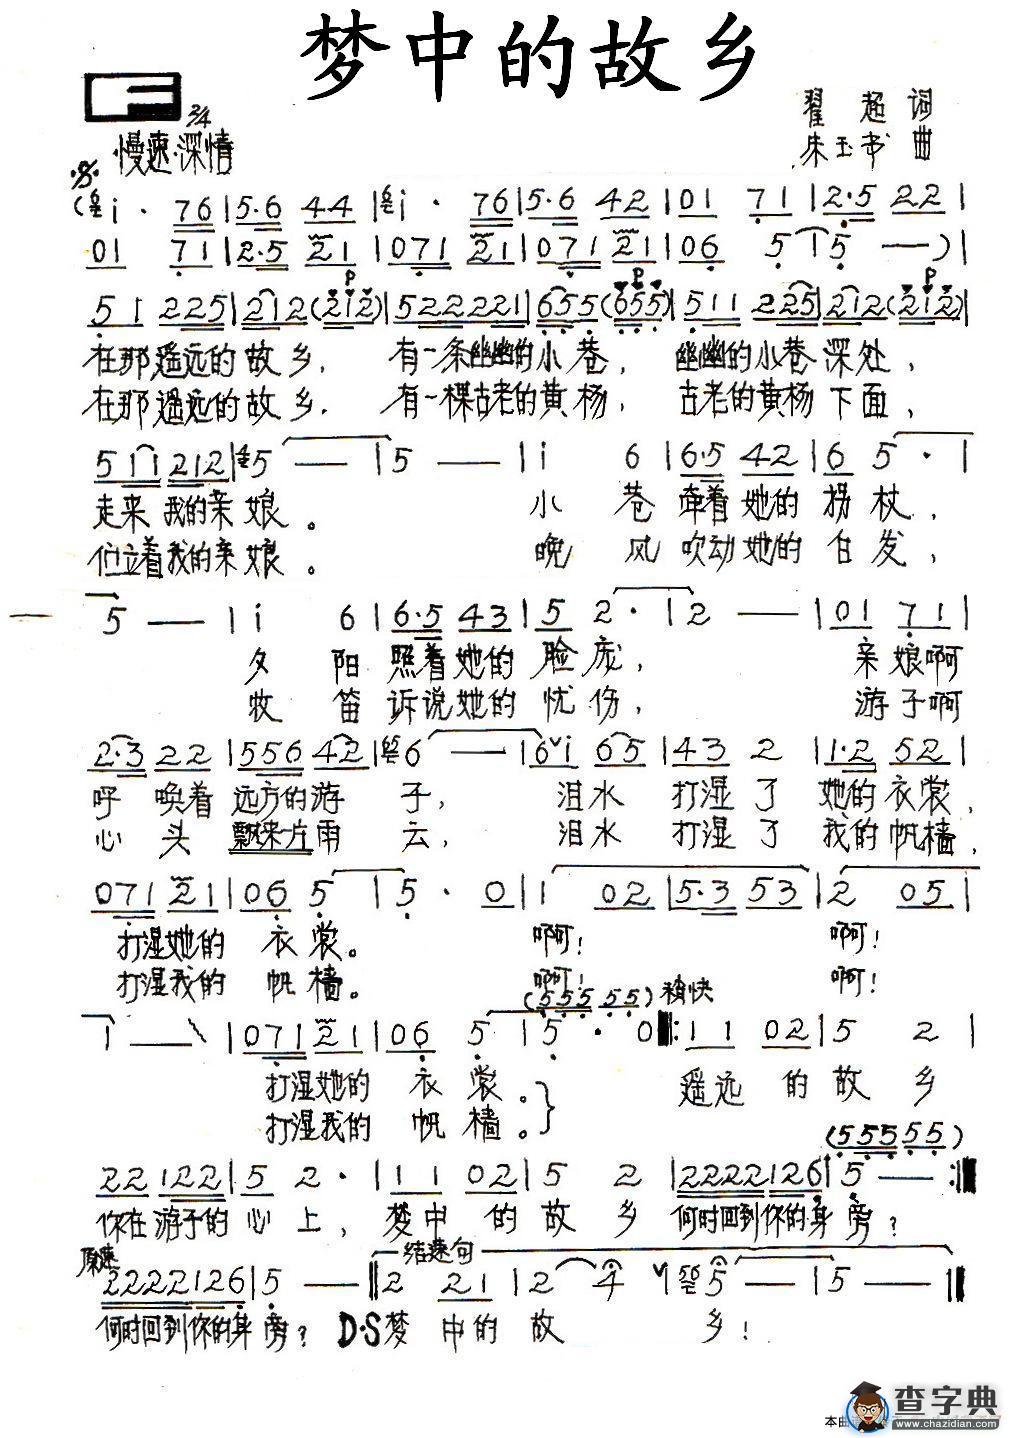 梦中的故乡
翟超 词
3/4
朱玉书 曲
慢速·深情
(i· 76|5·6 44|i· 76|5·6 42|01 71|2·5 22|
01 71|2·5 21|071 21|071 21|06 5|5 —)|
P P
51 225|212(212)|522221|655(655)|511 225|212(212)|
在那遥远的故乡, 有一条幽幽的小巷, 幽幽的小巷深处,
在那遥远的故乡. 有一棵古老的黄杨, 古老的黄杨下面,
511 212|5 —|5 —|i 6|6·5 42|6 5·|
走来我的亲娘。 小巷牵着她的拐杖,
伫立着我的亲娘。 晚风吹动她的白发,
5 —|i 6|6·5 43|5 2·|2 —|01 71|
夕阳照着她的脸庞, 亲娘啊
牧笛诉说她的忧伤, 游子啊
2·3 22|556 42|6 —|6 i 65|43 2|1·2 52|
呼唤着远方的游子, 泪水打湿了她的衣裳,
心头飘来一片雨云, 泪水打湿了我的帆樯,
071 21|06 5|5· 0|1 02|5·3 53|2 05|
打湿她的衣裳。 啊! 啊!
打湿我的帆樯。 啊! 啊!
(555 55) 稍快
1 —|071 21|06 5|5· 0‖:11 02|5 2|
打湿她的衣裳。 遥远的故乡
打湿我的帆樯。
(555 55)
22 122|5 2·|11 02|5 2|2222 126|5 —:‖
你在游子的心上, 梦中的故乡何时回到你的身旁?
原速 结束句
2222 126|5 —‖2 21|2 4|5 —|5 —‖
何时回到你的身旁? D·S梦中的故乡!
查字典
www.chazidian.com